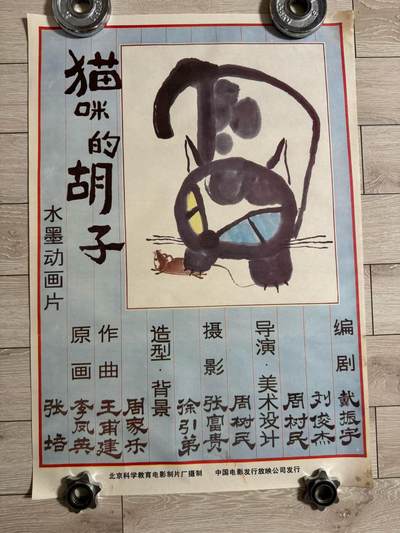 猫咪的胡子
水墨动画片
编剧 戴振宇 刘俊杰
导演·美术设计 周村民
摄影 周村民 张富贵
造型·背景 徐引弟 周家乐
作曲 王甫建
原画 李凤英 张培
北京科学教育电影制片厂摄制 中国电影发行放映公司发行